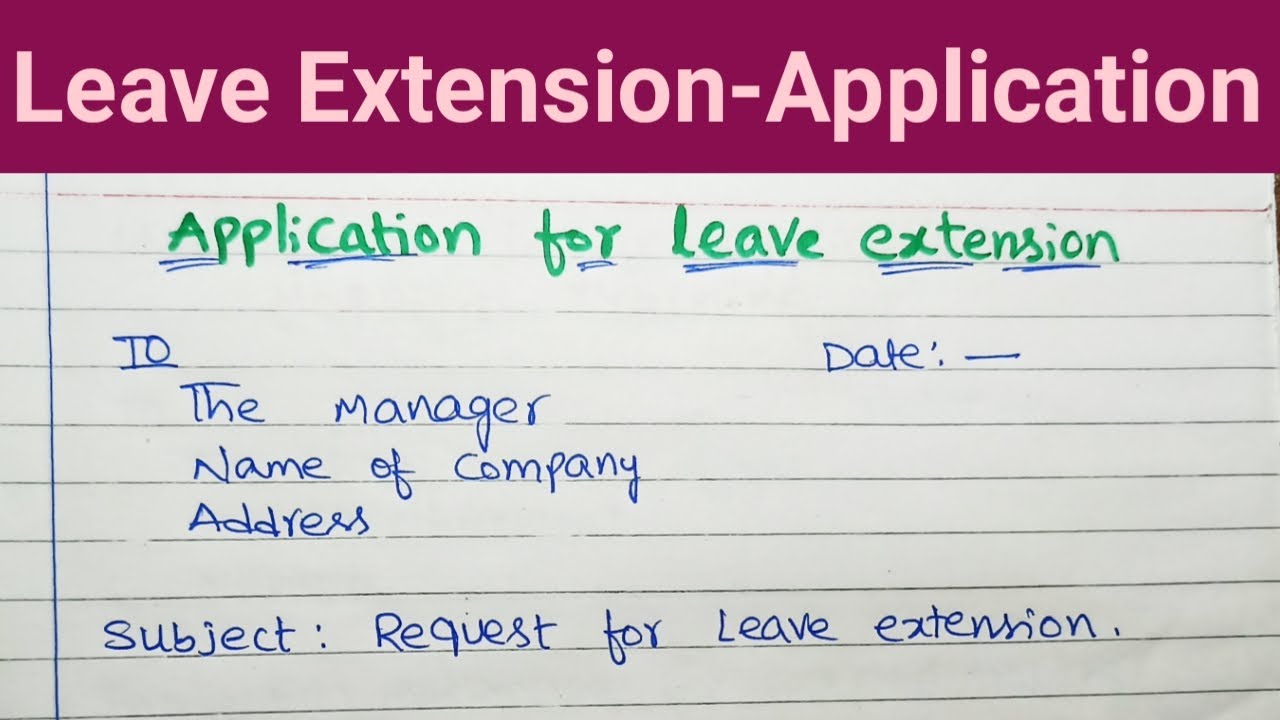 Leave Extension-Application
Application for leave extension
TO
Date: —
The Manager
Name of Company
Address
Subject: Request for Leave extension.